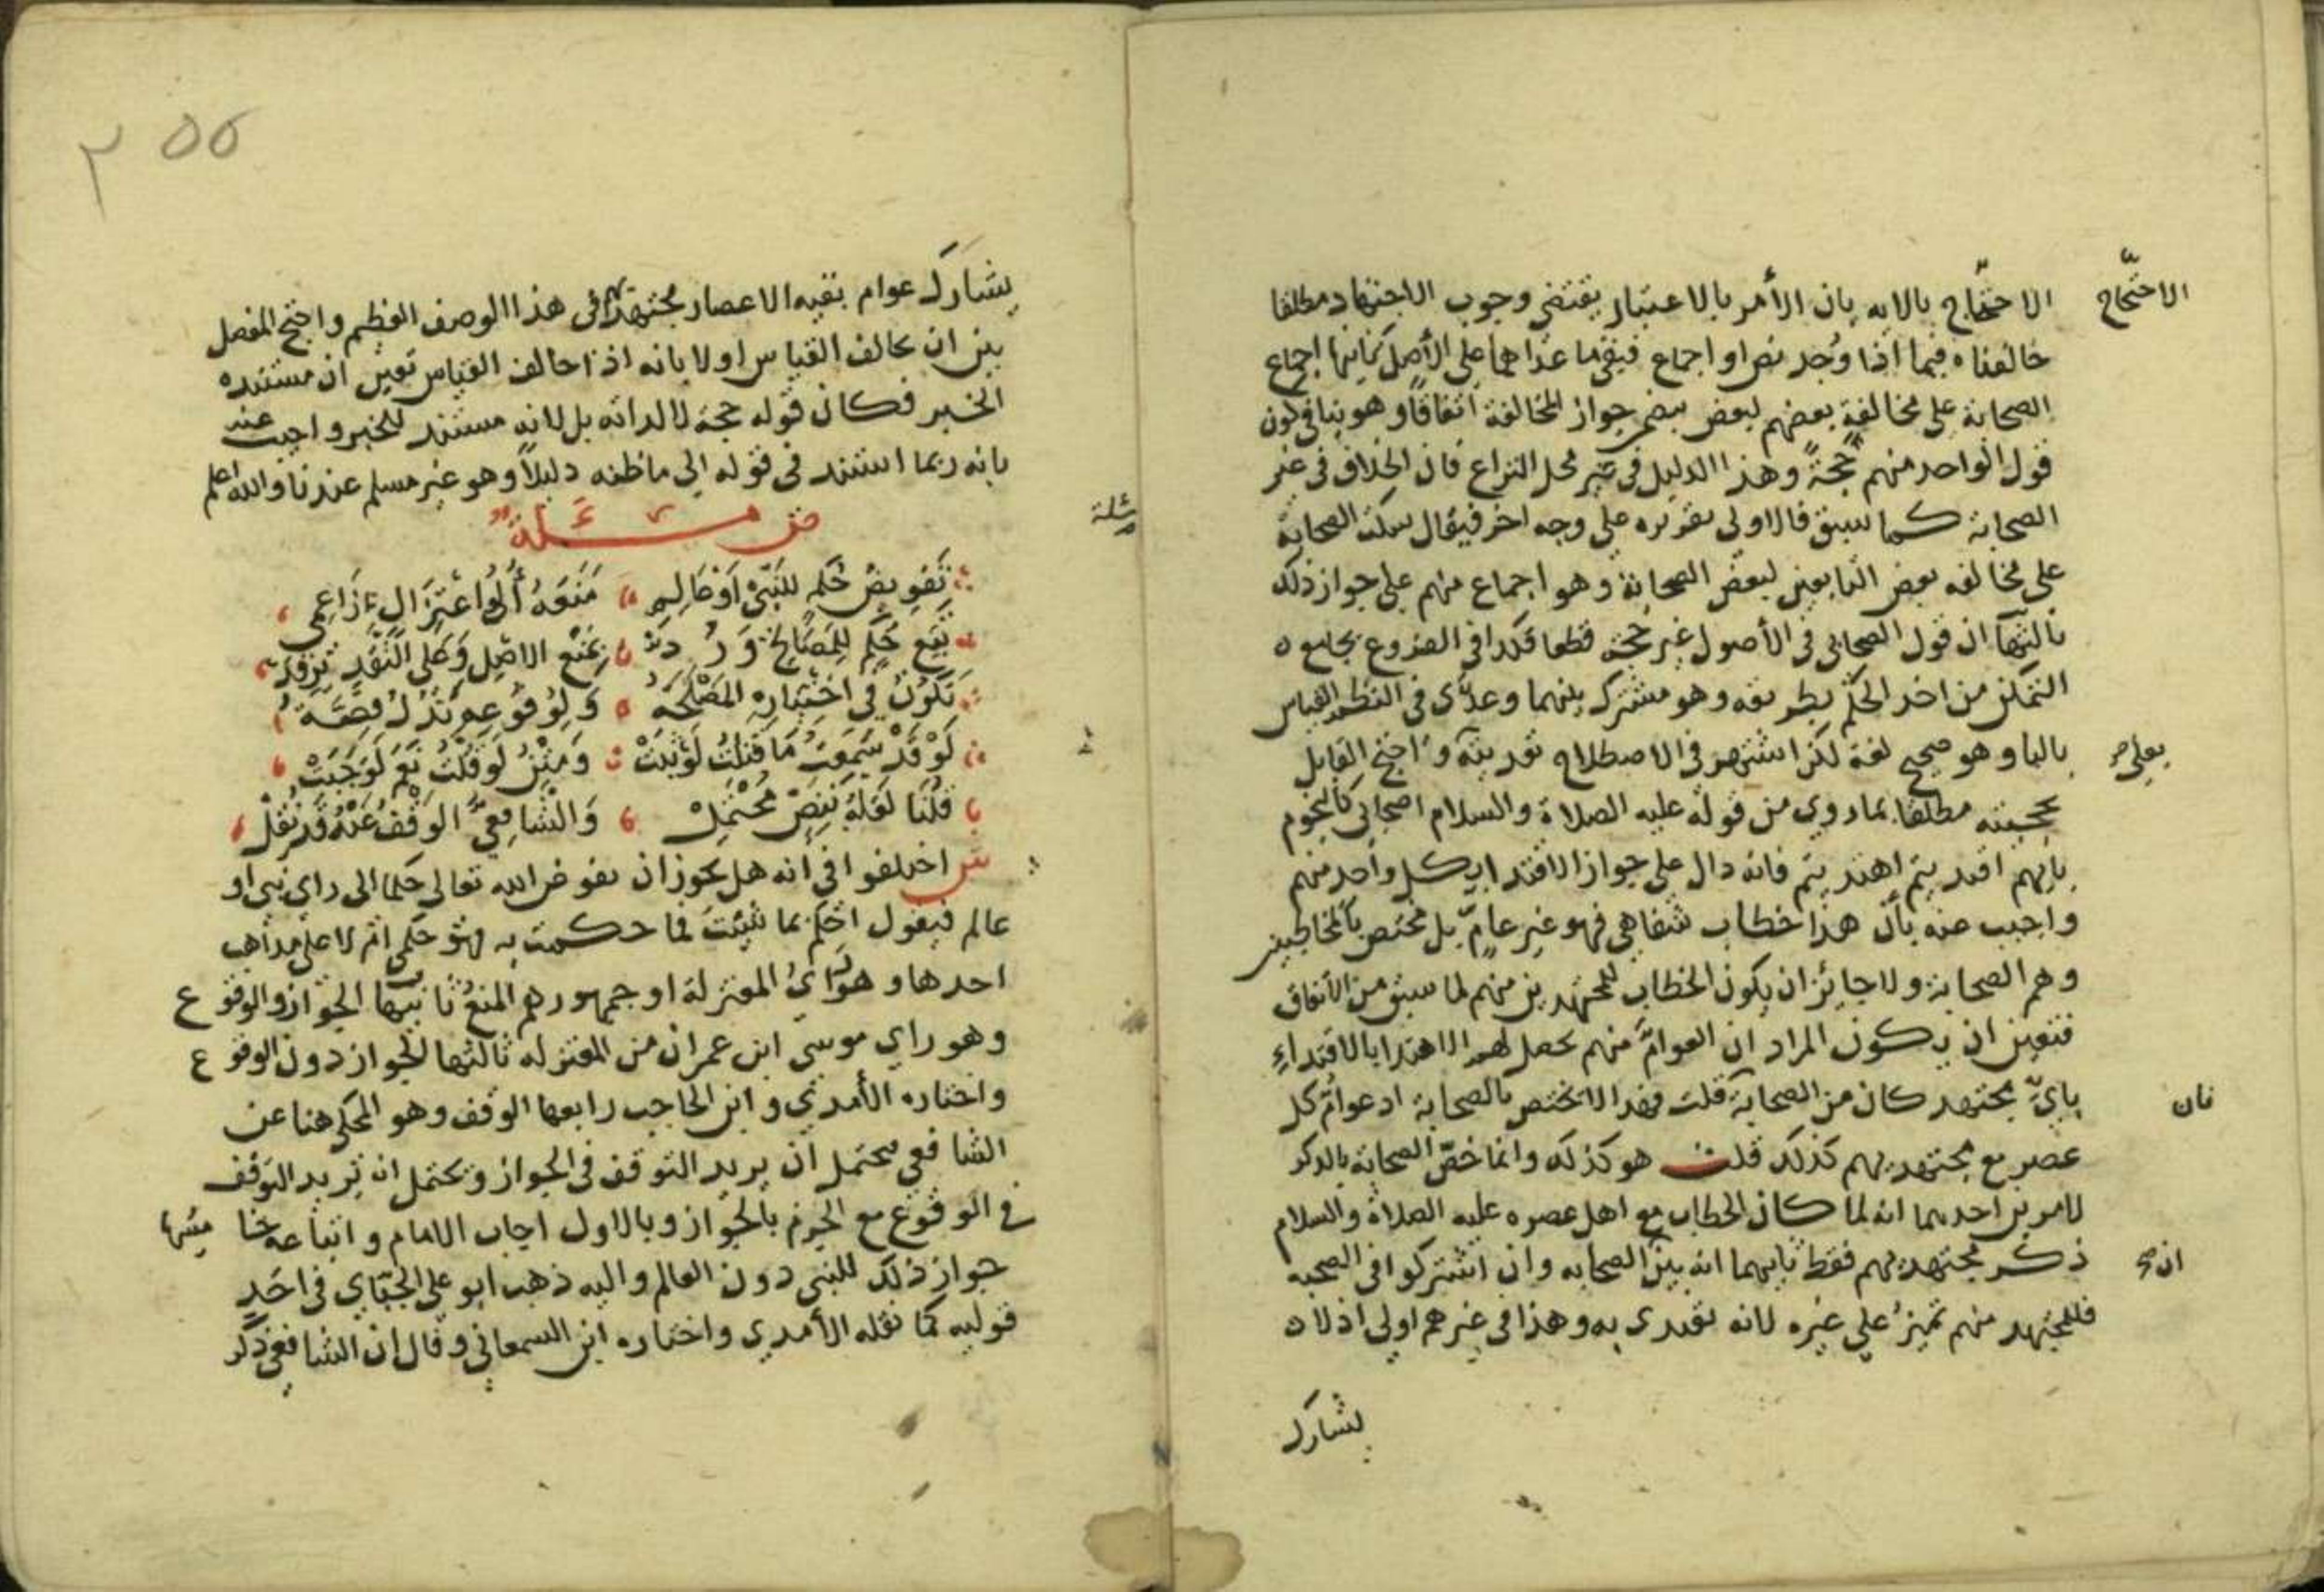 الاحتّجاج الاحتّجاج بالايه بان الأمر بالاعتبار يقتضي وجوب الاجتهاد مطلقا
خالفناه فيما اذا وُجد نص او اجماع فيبقى ما عداهما على الأصل ثانيها اجماع
الصحابة على مخالفة بعضهم لبعض جواز المخالفة اتفاقًا وهو ينافي كون
قول الواحد منهم حُجةً وهذا الدليل في غير محل النزاع فان الخلاف في غير
الصحابة كما سبق فالاولى تقريره على وجه اخر فيقال سكت الصحابة
على مخالفه بعض التابعين لبعض الصحابة وهو اجماع منهم على جواز ذلك
ثالثها ان قول الصحابي في الأصول غير حجة قطعا فكذا في الفروع بجامع ه
التمكن من اخذ الحكم بطريقه وهو مشترك بينهما وعدّى في النظم القياس
بالبا وهو صحيح لغة لكن اشتهر في الاصطلاح تعديته واحتج القايل بعلى صح
بحجيته مطلقا بما روي من قوله عليه الصلاة والسلام اصحابي كالنجوم
بايهم اقتديتم اهتديتم فانه دال على جواز الاقتدا بكل واحد منهم
واجيب عنه بأن هذا خطاب شفاهي فهو غير عامّ بل مختص بالمخاطبين
وهم الصحابة ولا جائز ان يكون الخطاب للمجتهدين منهم لما سبق من الاتفاق
فتعين ان يكون المراد ان العوامّ منهم يحصل لهم الاهتدا بالاقتداءِ
بايّ مجتهد كان من الصحابة قلت فهذا لا تختص بالصحابة اذ عوام كل فان
عصر مع مجتهديهم كذلك قلت هو كذلك وانما خصّ الصحابة بالذكر
لامرين احدهما انه لما كان الخطاب مع اهل عصره عليه الصلاة والسلام
ذكر مجتهديهم فقط ثانيهما انه بيّن الصحابه وان اشتركوا في الصحبه ان صح
فللمجتهد منهم تميزُ على غيره لانه تقيدى به وهذا في غيرهم اولى اذ لا ه
يشارك
٢٥٥
يشارك عوام بقيه الاعصار مجتهديهم في هذا الوصف العظيم واحتج المفصل
بين ان يخالف القياس اولا بانه اذا خالف القياس تعين ان مستنده
الخبر فكان قوله حجة لا لذاته بل لانه مستند للخبر واجيب عنه
بانه ربما استند في قوله الى ما ظنه دليلاً وهو غير مسلم عندنا والله اعلم
مسئلة ص مَسْئَلَةٌ
تَفويضُ حُكْمٍ للنَّبيّ اَوْ عَالِمِ مَنَعَهُ أُولُوا اعْتِزَالٍ
تَبَعِ حُكْمٍ لِلْمَصَالِحِ وَرُدَّتْ بِمَنْعِ الاصْلِ وَعَلى
تَكُونُ في اخْتِيَارِهِ المَصْلَحَهْ وَلِوُقُوعِهِ
لَوْ قَدْ سَمِعْتُ مَا قَتَلْتُ وَمِثْلُ لَوْ قُلْتُ نَعَمْ لَوَجَبَتْ
قُلْنَا لَعَلَّهُ بِنَصٍّ مُحْتَمِلْ وَالشَّافِعِيّ الوَقْفُ عَنْهُ قَدْ نُقِلْ
ش اختلفوا في انه هل يجوز ان يفوض الله تعالى حكما الى راي نبي او
عالم فيقول احكم بما شئتَ فما حكمت به فهو حكمي ام لا على مذاهب
احدها وهو رَايُ المعتزلة او جمهورهم المنعُ ثانيها الجواز والوقوع
وهو راي موسى ابن عمران من المعتزله ثالثها الجواز دون الوقوع
واختاره الأمدي وابن الحاجب رابعها الوقف وهو المحكى هنا عن
الشافعي يحتمل ان يريد التوقف في الجواز ويحتمل ان يريد التوقف
في الوقوع مع الجزم بالجواز وبالاول اجاب الامام واتباعه خامسها
جواز ذلك للنبي دون العالم واليه ذهب ابو علي الجبّاي في احَدِ
قوليه كما نقله الأمدي واختاره ابن السمعاني وقال ان الشافعي ذكر